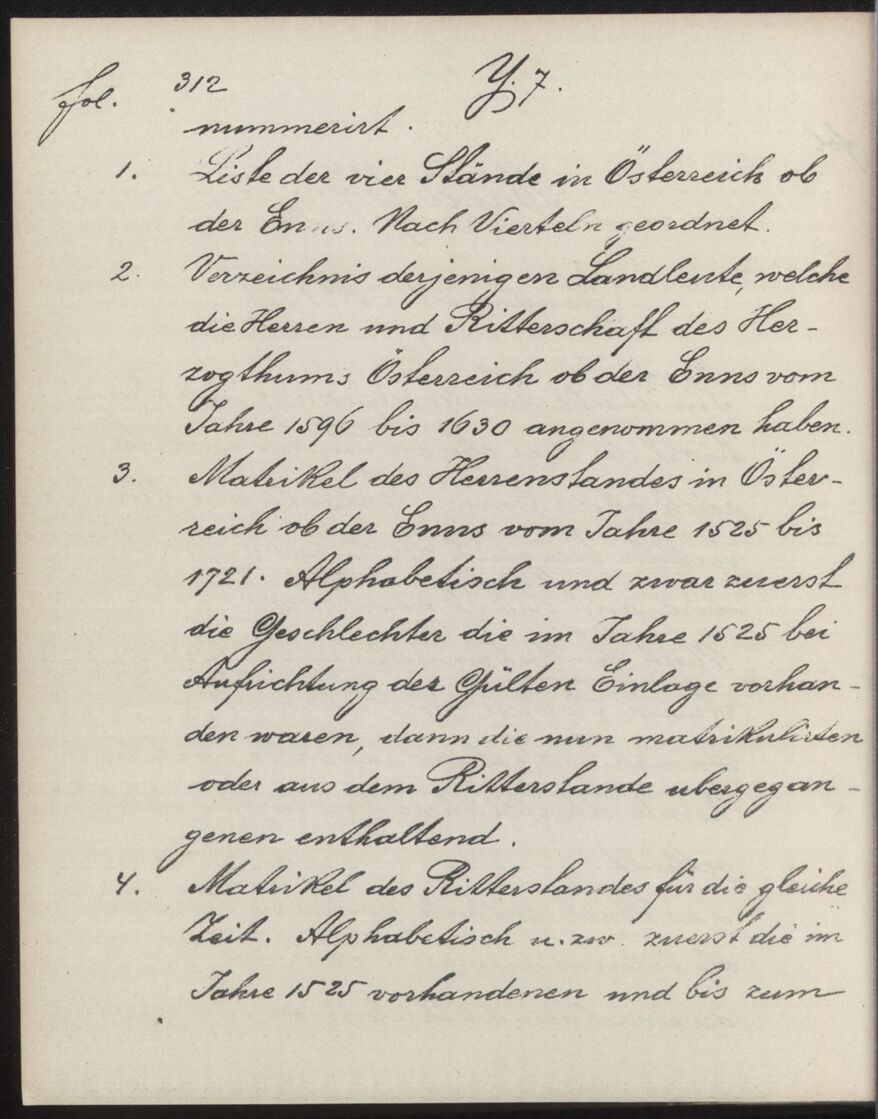 fol. 312 Y. 7.
nummerirt.
1. Liste der vier Stände in Österreich ob
der Enns. Nach Vierteln geordnet.
2. Verzeichnis derjenigen Landleute, welche
die Herren und Ritterschaft des Her-
zogthums Österreich ob der Enns vom
Jahre 1596 bis 1630 angenommen haben.
3. Matrikel des Herrenstandes in Öster-
reich ob der Enns vom Jahre 1525 bis
1721. Alphabetisch und zwar zuerst
die Geschlechter die im Jahre 1525 bei
Aufrichtung der Gülten Einlage vorhan-
den waren, dann die nun matrikulirten
oder aus dem Ritterstande übergegan-
genen enthaltend.
4. Matrikel des Ritterstandes für die gleiche
Zeit. Alphabetisch u. zw. zuerst die im
Jahre 1525 vorhandenen und bis zum